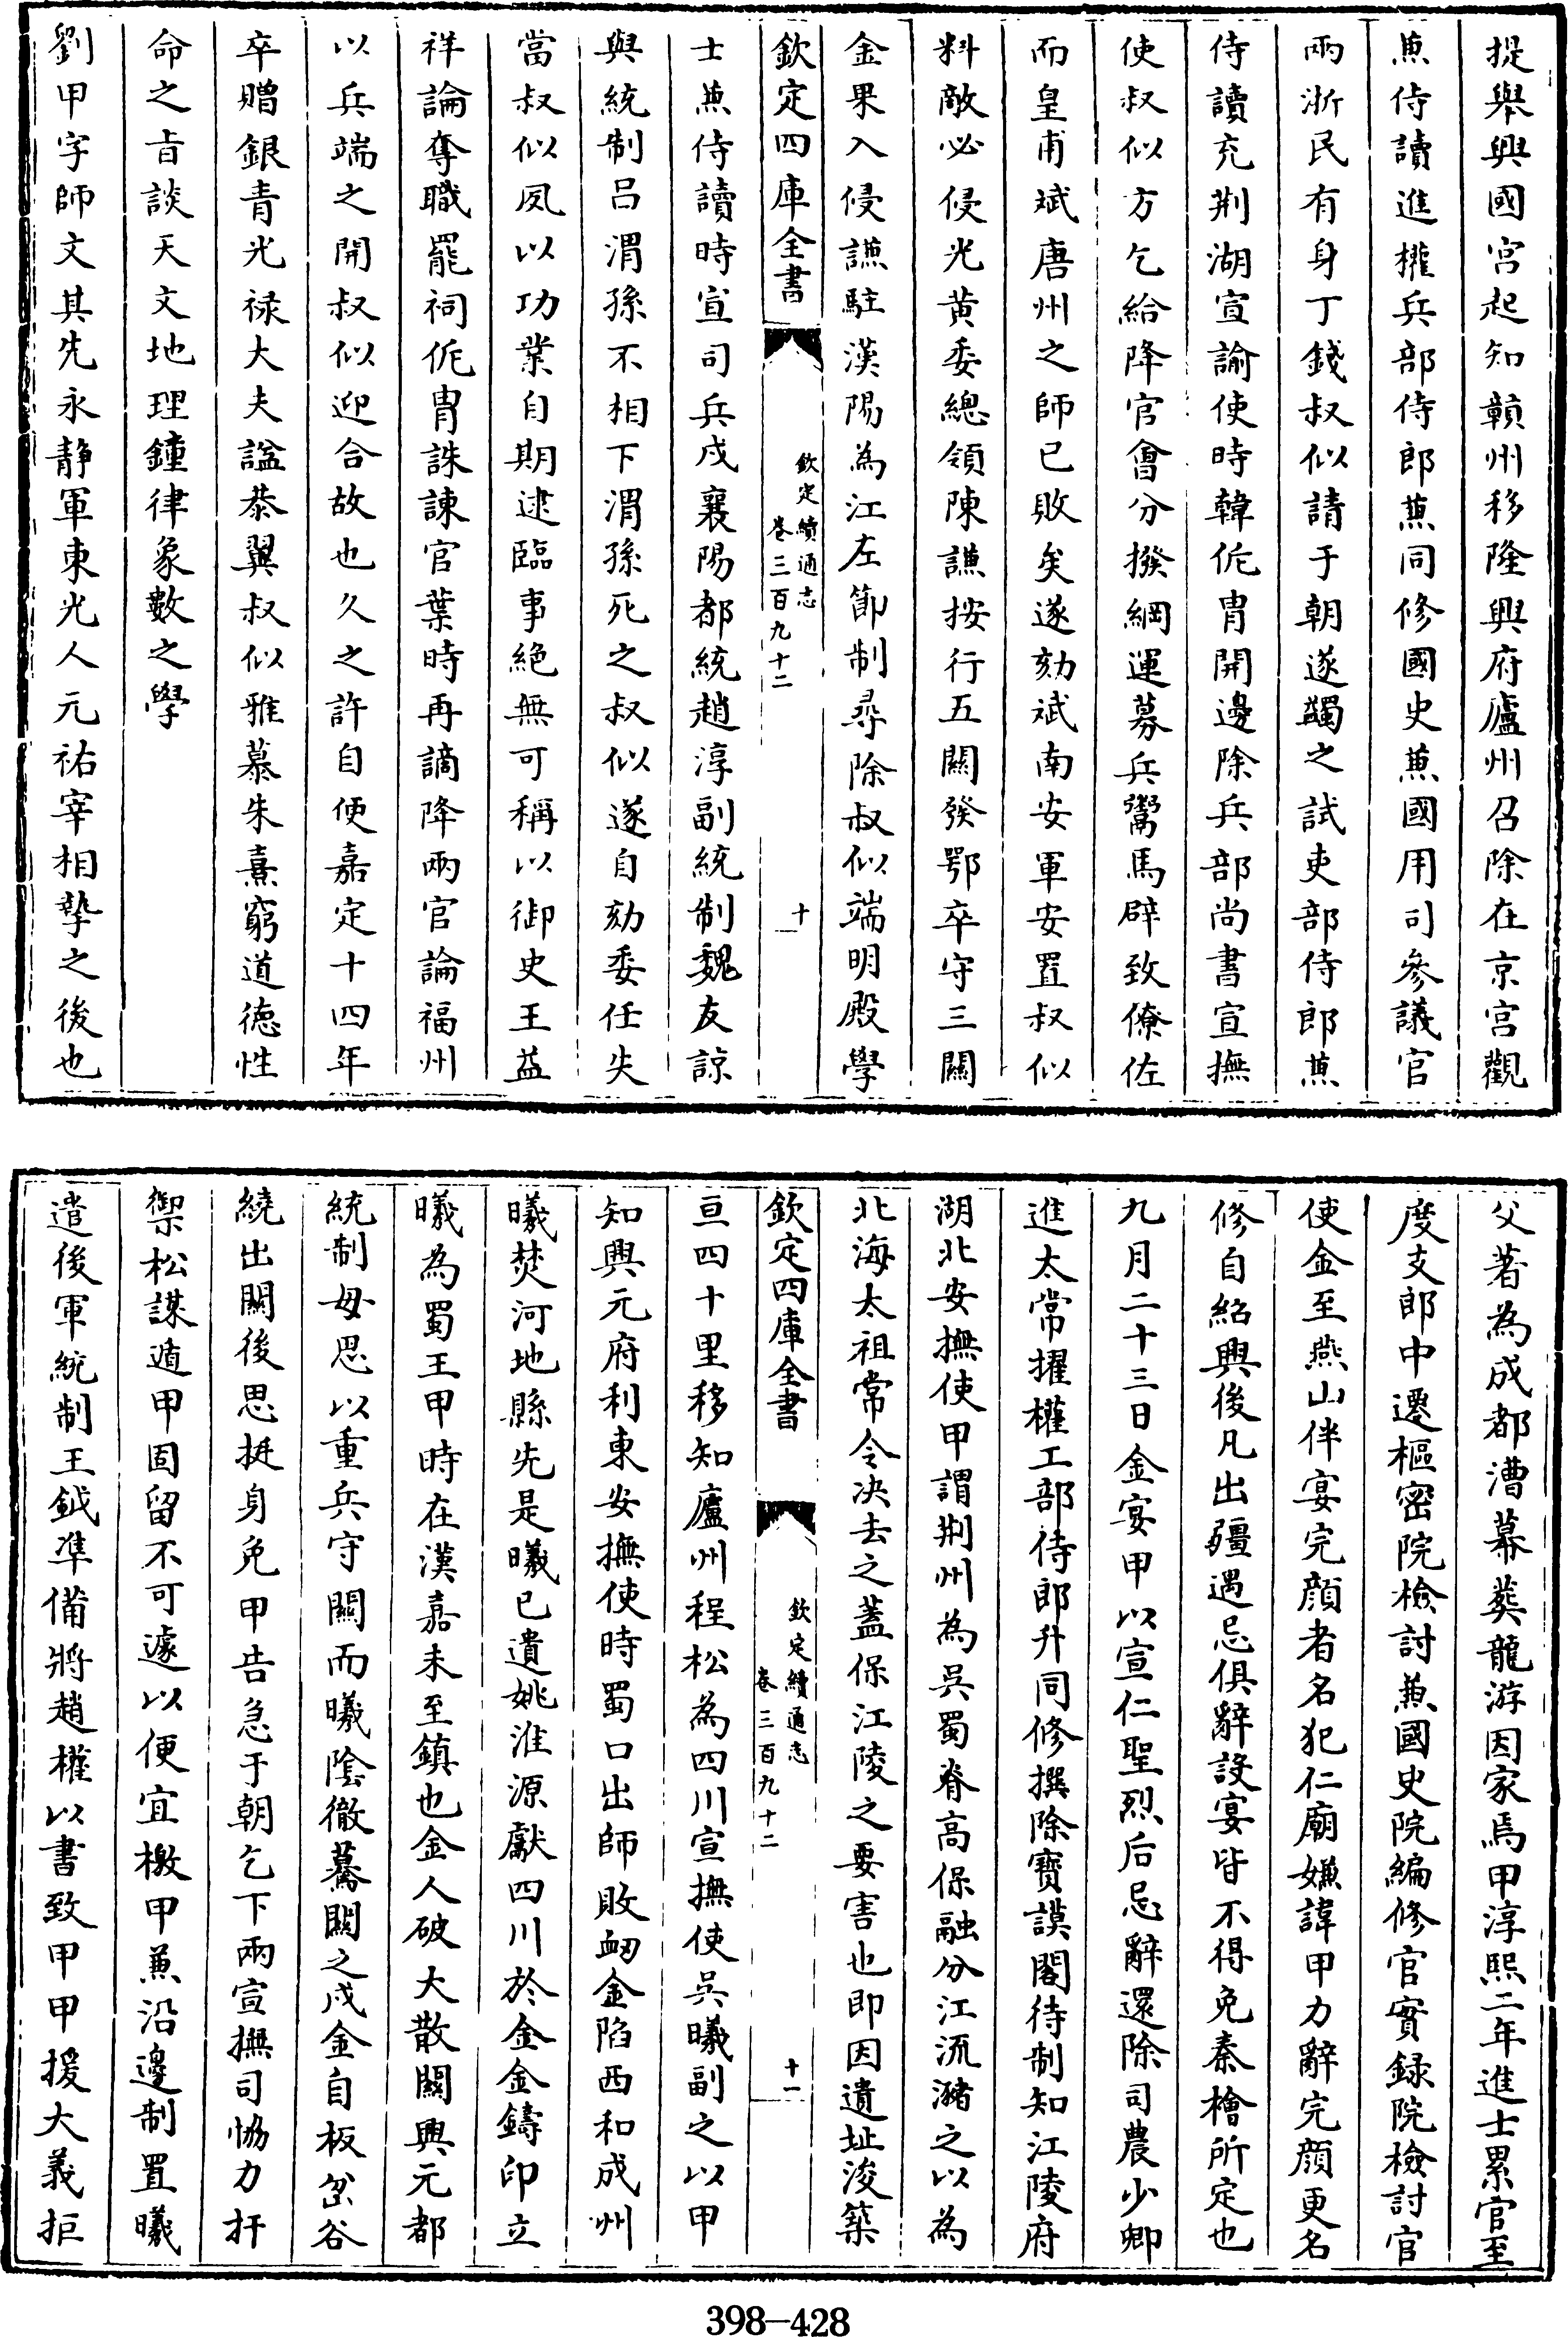 提舉興國宮起知贛州移隆興府廬州召除在京宮觀
兼侍讀進權兵部侍郎兼同修國史兼國用司參議官
兩浙民有身丁錢叔似請于朝遂蠲之試吏部侍郎兼
侍讀充荆湖宣諭使時韓侂胄開邊除兵部尚書宣撫
使叔似方乞給降官會分撥綱運募兵鬻馬辟致僚佐
而皇甫斌唐州之師已敗矣遂劾斌南安軍安置叔似
料敵必侵光黄委總領陳謙按行五關發鄂卒守三關
金果入侵謙駐漢陽為江左節制尋除叔似端明殿學
欽定四庫全書
欽定續通志
卷三百九十二
十
士兼侍讀時宣司兵戍襄陽都統趙淳副統制魏友諒
與統制吕渭孫不相下渭孫死之叔似遂自劾委任失
當叔似夙以功業自期逮臨事絶無可稱以御史王益
祥論奪職罷祠侂胄誅諫官葉時再謫降兩官論福州
以兵端之開叔似迎合故也久之許自便嘉定十四年
卒贈銀青光禄大夫諡恭翼叔似雅慕朱熹窮道徳性
命之旨談天文地理鍾律象數之學
劉甲字師文其先永静軍東光人元祐宰相摯之後也
父著為成都漕幕葬龍游因家焉甲淳熙二年進士累官至
度支郎中遷樞密院檢討兼國史院編修官實録院檢討官
使金至燕山伴宴完顔者名犯仁廟嫌諱甲力辭完顔更名
修自紹興後凡出疆遇忌俱辭設宴皆不得免秦檜所定也
九月二十三日金宴甲以宣仁聖烈后忌辭還除司農少卿
進太常擢權工部侍郎升同修撰除寶謨閣待制知江陵府
湖北安撫使甲謂荆州為吳蜀脊高保融分江流瀦之以為
北海太祖常令决去之蓋保江陵之要害也即因遺址浚築
欽定四庫全書
欽定續通志
卷三百九十二
十一
亘四十里移知廬州程松為四川宣撫使吳曦副之以甲
知興元府利東安撫使時蜀口出師敗衂金陷西和成州
曦焚河地縣先是曦已遺姚淮源獻四川於金金鑄印立
曦為蜀王甲時在漢嘉未至鎮也金人破大散關興元都
統制毋思以重兵守關而曦陰徹驀關之戍金自板岔谷
繞出關後思挺身免甲告急于朝乞下兩宣撫司協力扞
禦松謀遁甲固留不可遽以便宜檄甲兼沿邊制置曦
遣後軍統制王鉞凖備將趙權以書致甲甲援大義拒
398-428